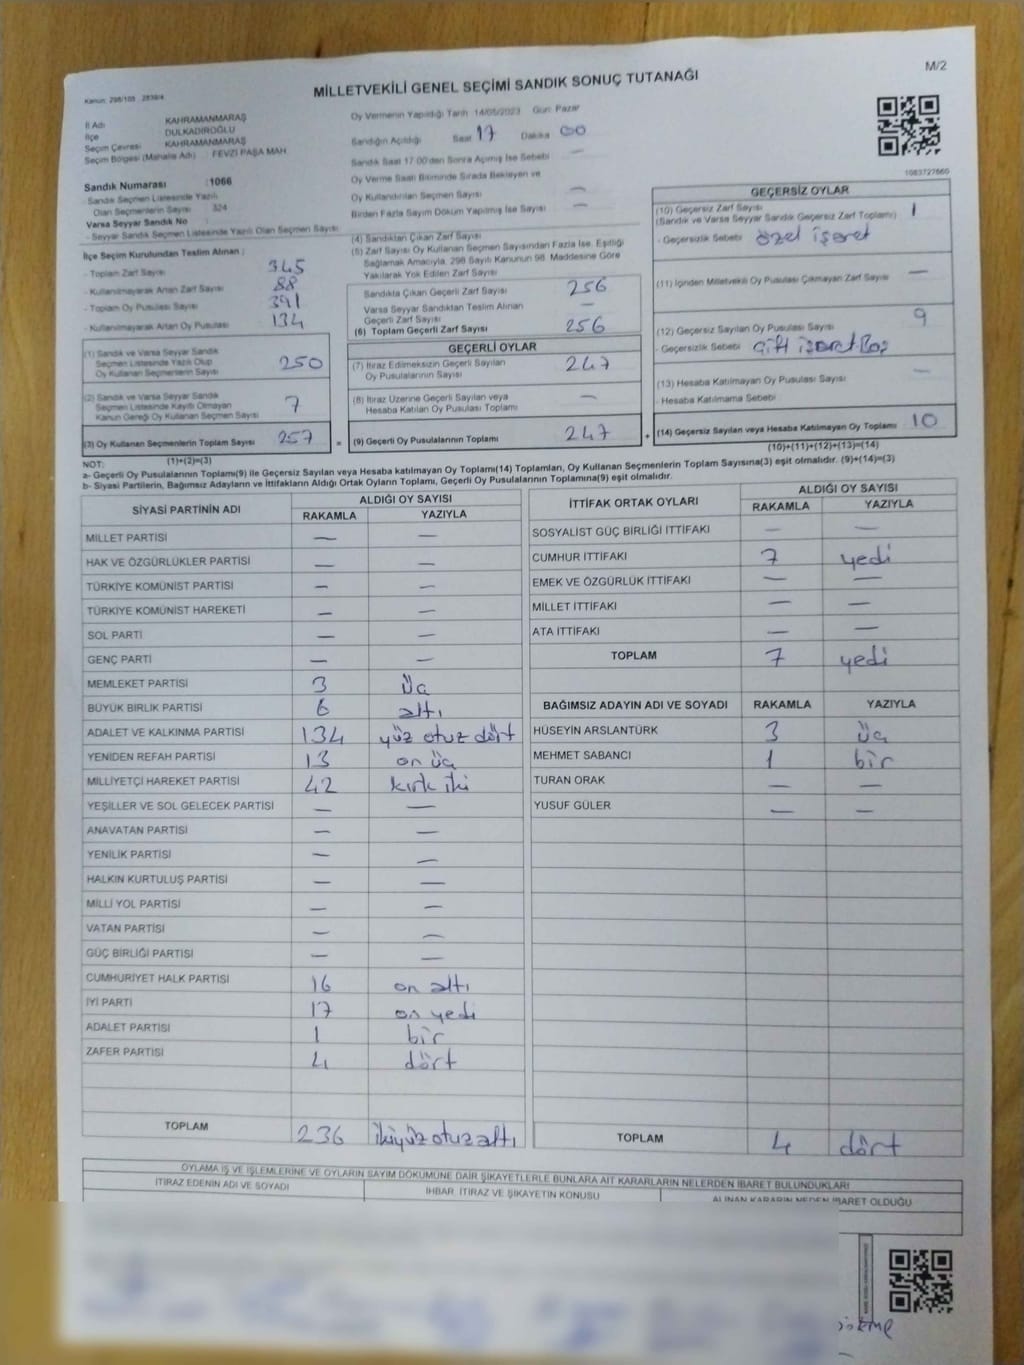 M/2
MİLLETVEKİLİ GENEL SEÇİMİ SANDIK SONUÇ TUTANAĞI
İl Adı KAHRAMANMARAŞ
İlçe DULKADİROĞLU
Seçim Çevresi KAHRAMANMARAŞ
Seçim Bölgesi (Mahalle Adı) : FEVZİ PAŞA MAH.
Sandık Numarası : 1066
- Sandık Seçmen Listesinde Yazılı
Olan Seçmenlerin Sayısı : 324
Varsa Seyyar Sandık No :
- Seyyar Sandık Seçmen Listesinde Yazılı Olan Seçmen Sayısı
Oy Vermenin Yapıldığı Tarih 14/05/2023 Gün: Pazar
Sandığın Açıldığı Saat 17 Dakika 00
Sandık Saat 17:00'den Sonra Açılmış İse Sebebi —
Oy Verme Saati Bitiminde Sırada Bekleyen ve
Oy Kullandırılan Seçmen Sayısı —
Birden Fazla Sayım Döküm Yapılmış İse Sayısı —
1083727660
İlçe Seçim Kurulundan Teslim Alınan :
- Toplam Zarf Sayısı 345
- Kullanılmayarak Artan Zarf Sayısı 88
- Toplam Oy Pusulası Sayısı 391
- Kullanılmayarak Artan Oy Pusulası 134
(1) Sandık ve Varsa Seyyar Sandık
Seçmen Listesinde Yazılı Olup
Oy Kullanan Seçmenlerin Sayısı 250
(2) Sandık ve Varsa Seyyar Sandık
Seçmen Listesinde Kayıtlı Olmayan
Kanun Gereği Oy Kullanan Seçmen Sayısı 7
(3) Oy Kullanan Seçmenlerin Toplam Sayısı 257 =
(1)+(2)=(3)
(4) Sandıktan Çıkan Zarf Sayısı
(5) Zarf Sayısı Oy Kullanan Seçmen Sayısından Fazla İse, Eşitliği
Sağlamak Amacıyla, 298 Sayılı Kanunun 98. Maddesine Göre
Yakılarak Yok Edilen Zarf Sayısı
Sandıkta Çıkan Geçerli Zarf Sayısı 256
Varsa Seyyar Sandıktan Teslim Alınan
Geçerli Zarf Sayısı —
(6) Toplam Geçerli Zarf Sayısı 256
GEÇERLİ OYLAR
(7) İtiraz Edilmeksizin Geçerli Sayılan
Oy Pusulalarının Sayısı 247
(8) İtiraz Üzerine Geçerli Sayılan veya
Hesaba Katılan Oy Pusulası Toplamı —
(9) Geçerli Oy Pusulalarının Toplamı 247 +
GEÇERSİZ OYLAR
(10) Geçersiz Zarf Sayısı 1
(Sandık ve Varsa Seyyar Sandık Geçersiz Zarf Toplamı)
- Geçersizlik Sebebi özel işaret
(11) İçinden Milletvekili Oy Pusulası Çıkmayan Zarf Sayısı —
(12) Geçersiz Sayılan Oy Pusulası Sayısı 9
- Geçersizlik Sebebi Çift işaret Boş
(13) Hesaba Katılmayan Oy Pusulası Sayısı —
- Hesaba Katılmama Sebebi
(14) Geçersiz Sayılan veya Hesaba Katılmayan Oy Toplamı 10
(10)+(11)+(12)+(13)=(14)
NOT:
a- Geçerli Oy Pusulalarının Toplamı(9) ile Geçersiz Sayılan veya Hesaba katılmayan Oy Toplamı(14) Toplamları, Oy Kullanan Seçmenlerin Toplam Sayısına(3) eşit olmalıdır. (9)+(14)=(3)
b- Siyasi Partilerin, Bağımsız Adayların ve İttifakların Aldığı Ortak Oyların Toplamı, Geçerli Oy Pusulalarının Toplamına(9) eşit olmalıdır.
SİYASİ PARTİNİN ADI ALDIĞI OY SAYISI
RAKAMLA YAZIYLA
MİLLET PARTİSİ — —
HAK VE ÖZGÜRLÜKLER PARTİSİ — —
TÜRKİYE KOMÜNİST PARTİSİ — —
TÜRKİYE KOMÜNİST HAREKETİ — —
SOL PARTİ — —
GENÇ PARTİ — —
MEMLEKET PARTİSİ 3 üç
BÜYÜK BİRLİK PARTİSİ 6 altı
ADALET VE KALKINMA PARTİSİ 134 yüz otuz dört
YENİDEN REFAH PARTİSİ 13 on üç
MİLLİYETÇİ HAREKET PARTİSİ 42 kırk iki
YEŞİLLER VE SOL GELECEK PARTİSİ — —
ANAVATAN PARTİSİ — —
YENİLİK PARTİSİ — —
HALKIN KURTULUŞ PARTİSİ — —
MİLLİ YOL PARTİSİ — —
VATAN PARTİSİ — —
GÜÇ BİRLİĞİ PARTİSİ — —
CUMHURİYET HALK PARTİSİ 16 on altı
İYİ PARTİ 17 on yedi
ADALET PARTİSİ 1 bir
ZAFER PARTİSİ 4 dört
TOPLAM 236 ikiyüz otuz altı
İTTİFAK ORTAK OYLARI ALDIĞI OY SAYISI
RAKAMLA YAZIYLA
SOSYALİST GÜÇ BİRLİĞİ İTTİFAKI — —
CUMHUR İTTİFAKI 7 yedi
EMEK VE ÖZGÜRLÜK İTTİFAKI — —
MİLLET İTTİFAKI — —
ATA İTTİFAKI — —
TOPLAM 7 yedi
BAĞIMSIZ ADAYIN ADI VE SOYADI RAKAMLA YAZIYLA
HÜSEYİN ARSLANTÜRK 3 üç
MEHMET SABANCI 1 bir
TURAN ORAK — —
YUSUF GÜLER — —
TOPLAM 4 dört
OYLAMA İŞ VE İŞLEMLERİNE VE OYLARIN SAYIM DÖKÜMÜNE DAİR ŞİKAYETLERLE BUNLARA AİT KARARLARIN NELERDEN İBARET BULUNDUKLARI
İTİRAZ EDENİN ADI VE SOYADI İHBAR, İTİRAZ VE ŞİKAYETİN KONUSU ALINAN KARARIN NEDEN İBARET OLDUĞU